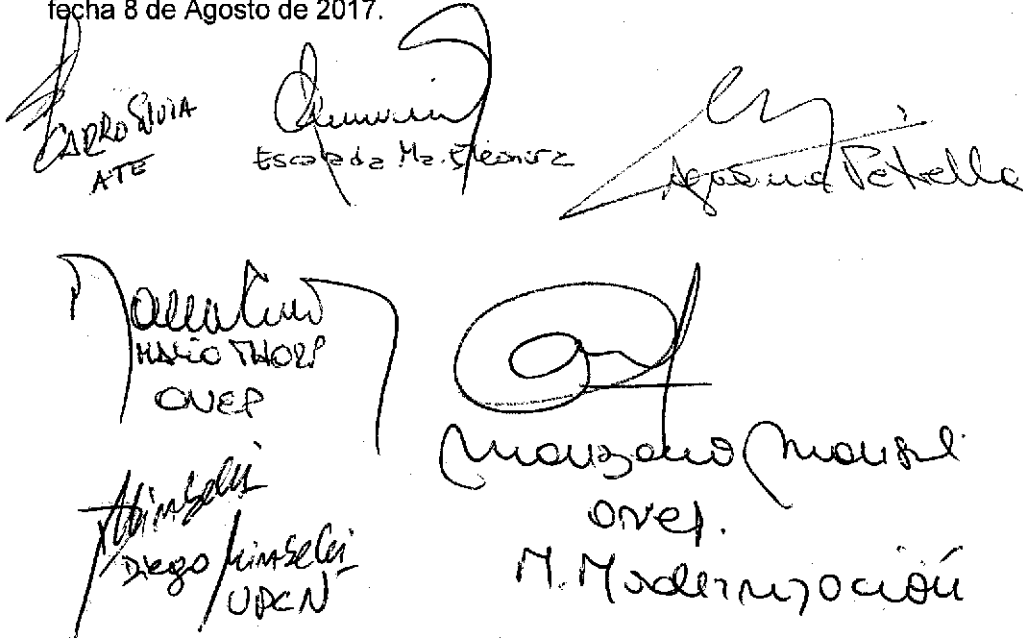 fecha 8 de Agosto de 2017.
CARRO SILVIA
ATE
Escalada Ma. Eleonora
Petrella
MARIO THOLP
ONEP
Manzano Manuel
ONEP.
M. Modernización
Diego
UPCN